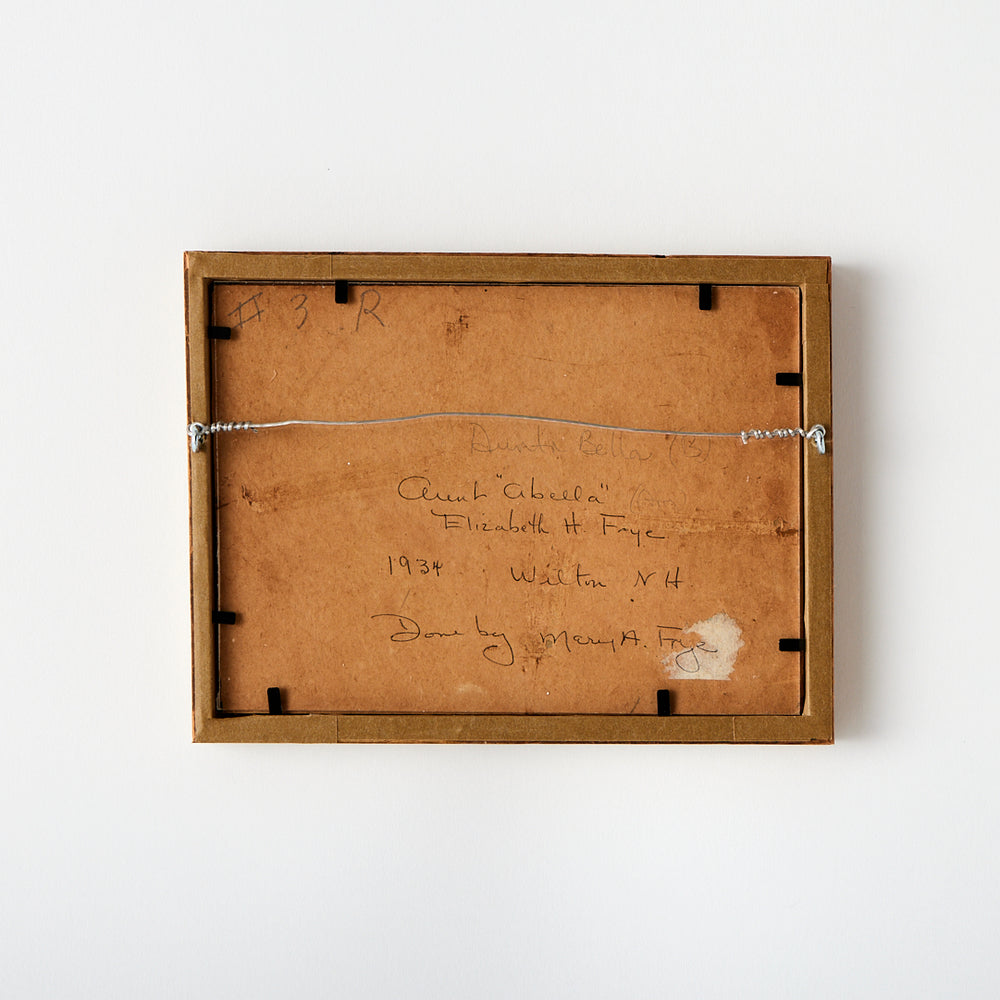 # 3 R
Bella (3)
Aunt "Abella"
Elizabeth H. Frye
1934 Wilton N H
Done by Mary A. Frye